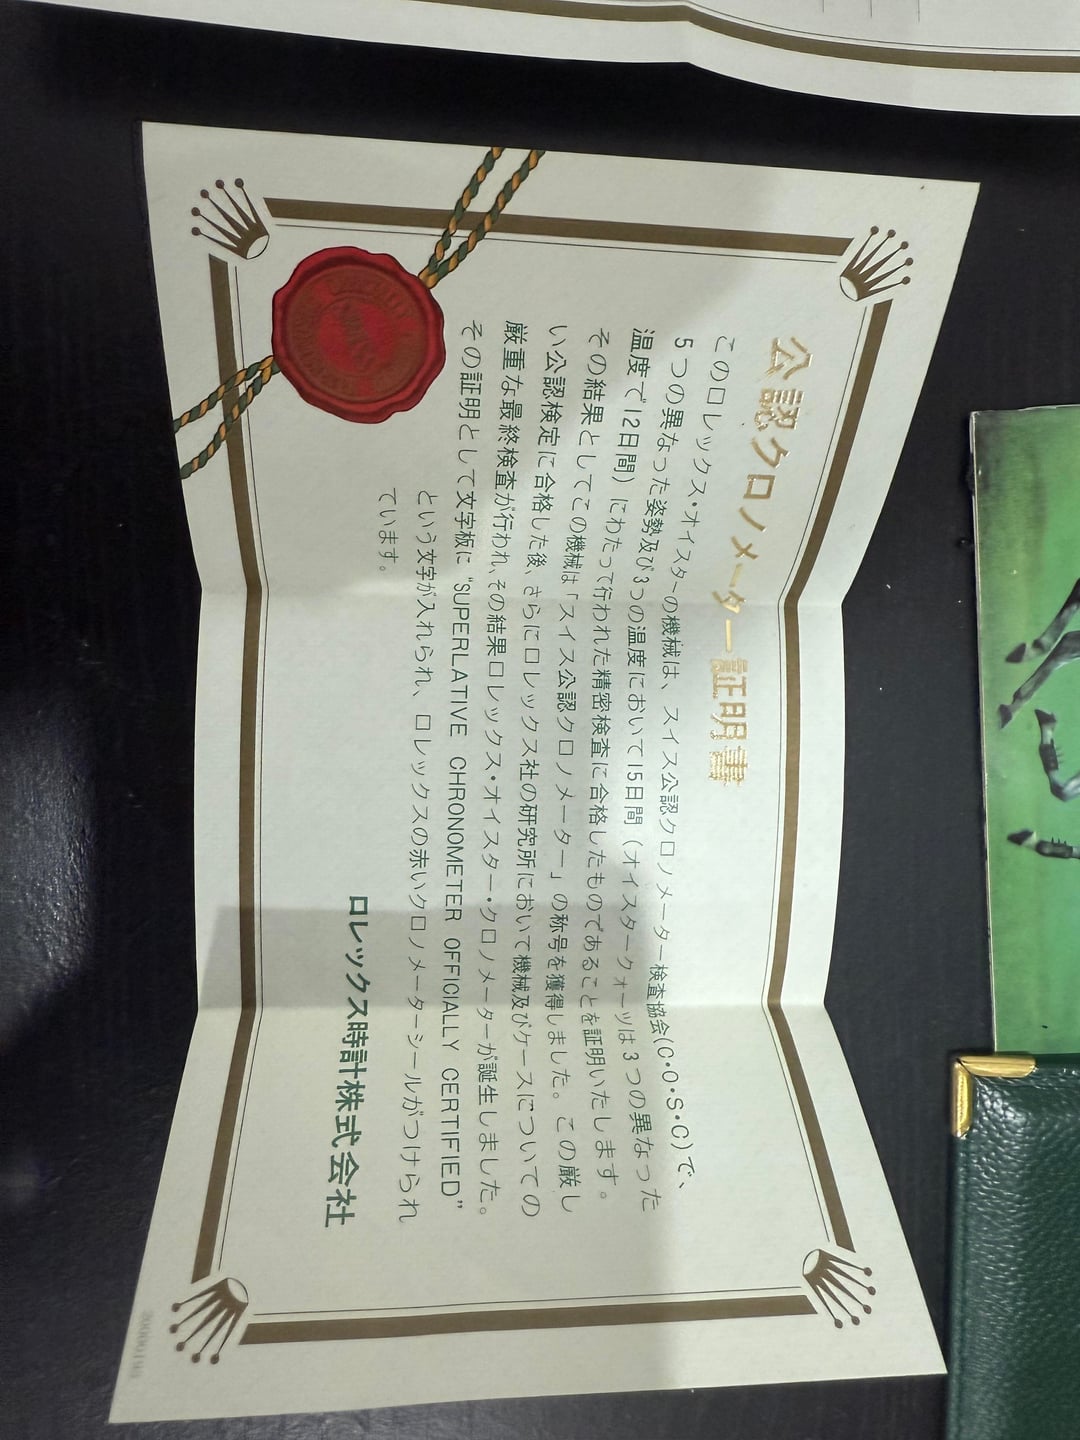 公認クロノメーター証明書
このロレックス・オイスターの機械は、スイス公認クロノメーター検査協会(C・O・S・C)で、
5つの異なった姿勢及び3つの温度において15日間（オイスタークォーツは3つの異なった
温度で12日間）にわたって行われた精密検査に合格したものであることを証明いたします。
その結果としてこの機械は「スイス公認クロノメーター」の称号を獲得しました。この厳し
い公認検定に合格した後、さらにロレックス社の研究所において機械及びケースについての
厳重な最終検査が行われ、その結果ロレックス・オイスター・クロノメーターが誕生しました。
その証明として文字板に“SUPERLATIVE CHRONOMETER OFFICIALLY CERTIFIED”
という文字が入れられ、ロレックスの赤いクロノメーターシールがつけられ
ています。
ロレックス時計株式会社